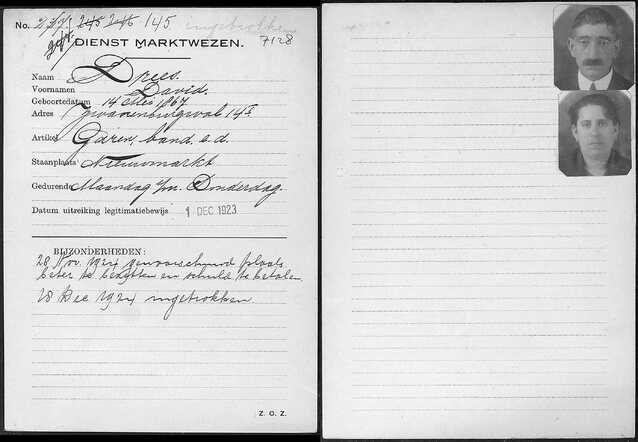 No. 145 ingetrokken
DIENST MARKTWEZEN.
7128
Naam Drees.
Voornamen David.
Geboortedatum 14 Mei 1867
Adres Zwanenburgwal 14
Artikel Garen, band e.d.
Staanplaats Nieuwmarkt
Gedurende Maandag t/m Donderdag.
Datum uitreiking legitimatiebewijs 1 DEC 1923
BIJZONDERHEDEN:
28 Nov. 1924 gewaarschuwd plaats
beter te bezetten en schuld te betalen
18 Dec 1924 ingetrokken
Z. O. Z.